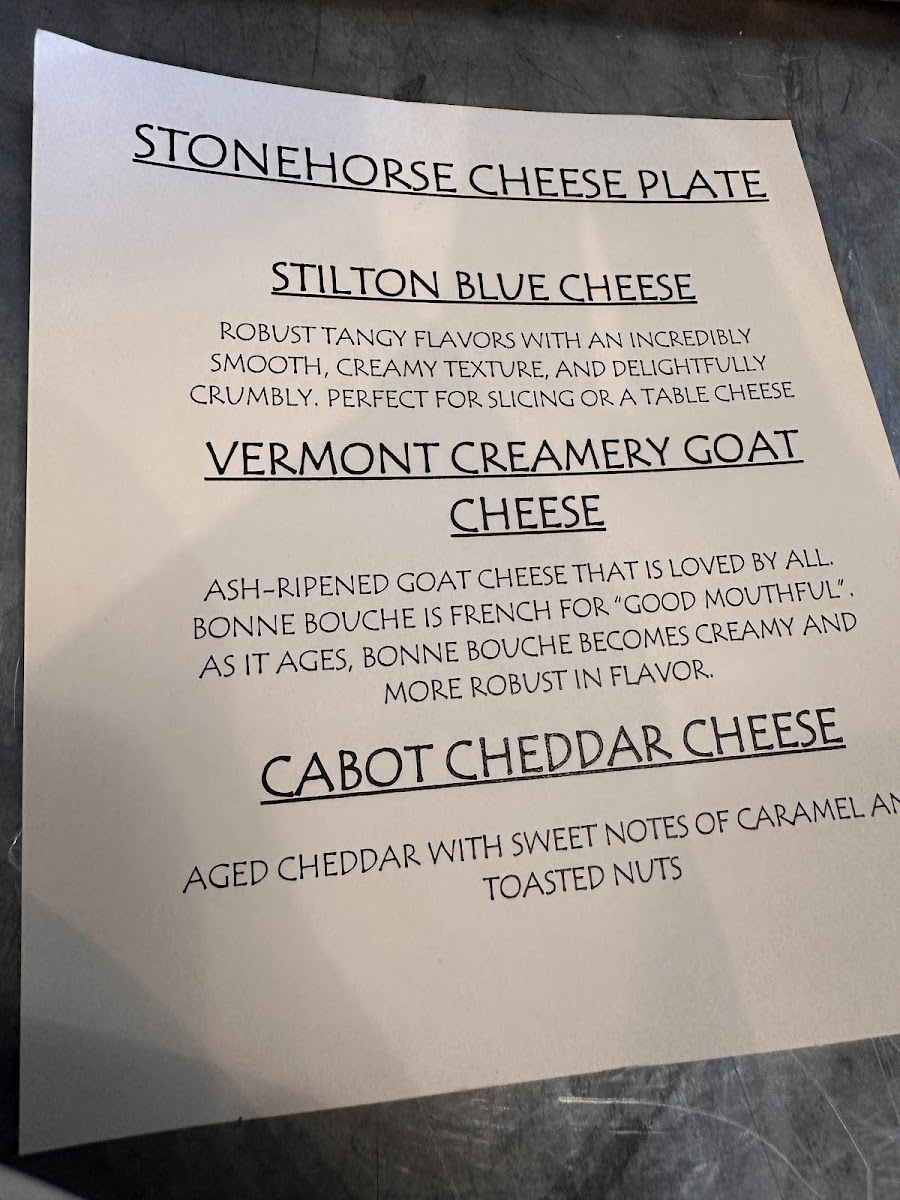 STONEHORSE CHEESE PLATE
STILTON BLUE CHEESE
ROBUST TANGY FLAVORS WITH AN INCREDIBLY
SMOOTH, CREAMY TEXTURE, AND DELIGHTFULLY
CRUMBLY. PERFECT FOR SLICING OR A TABLE CHEESE
VERMONT CREAMERY GOAT
CHEESE
ASH-RIPENED GOAT CHEESE THAT IS LOVED BY ALL.
BONNE BOUCHE IS FRENCH FOR "GOOD MOUTHFUL".
AS IT AGES, BONNE BOUCHE BECOMES CREAMY AND
MORE ROBUST IN FLAVOR.
CABOT CHEDDAR CHEESE
AGED CHEDDAR WITH SWEET NOTES OF CARAMEL
TOASTED NUTS